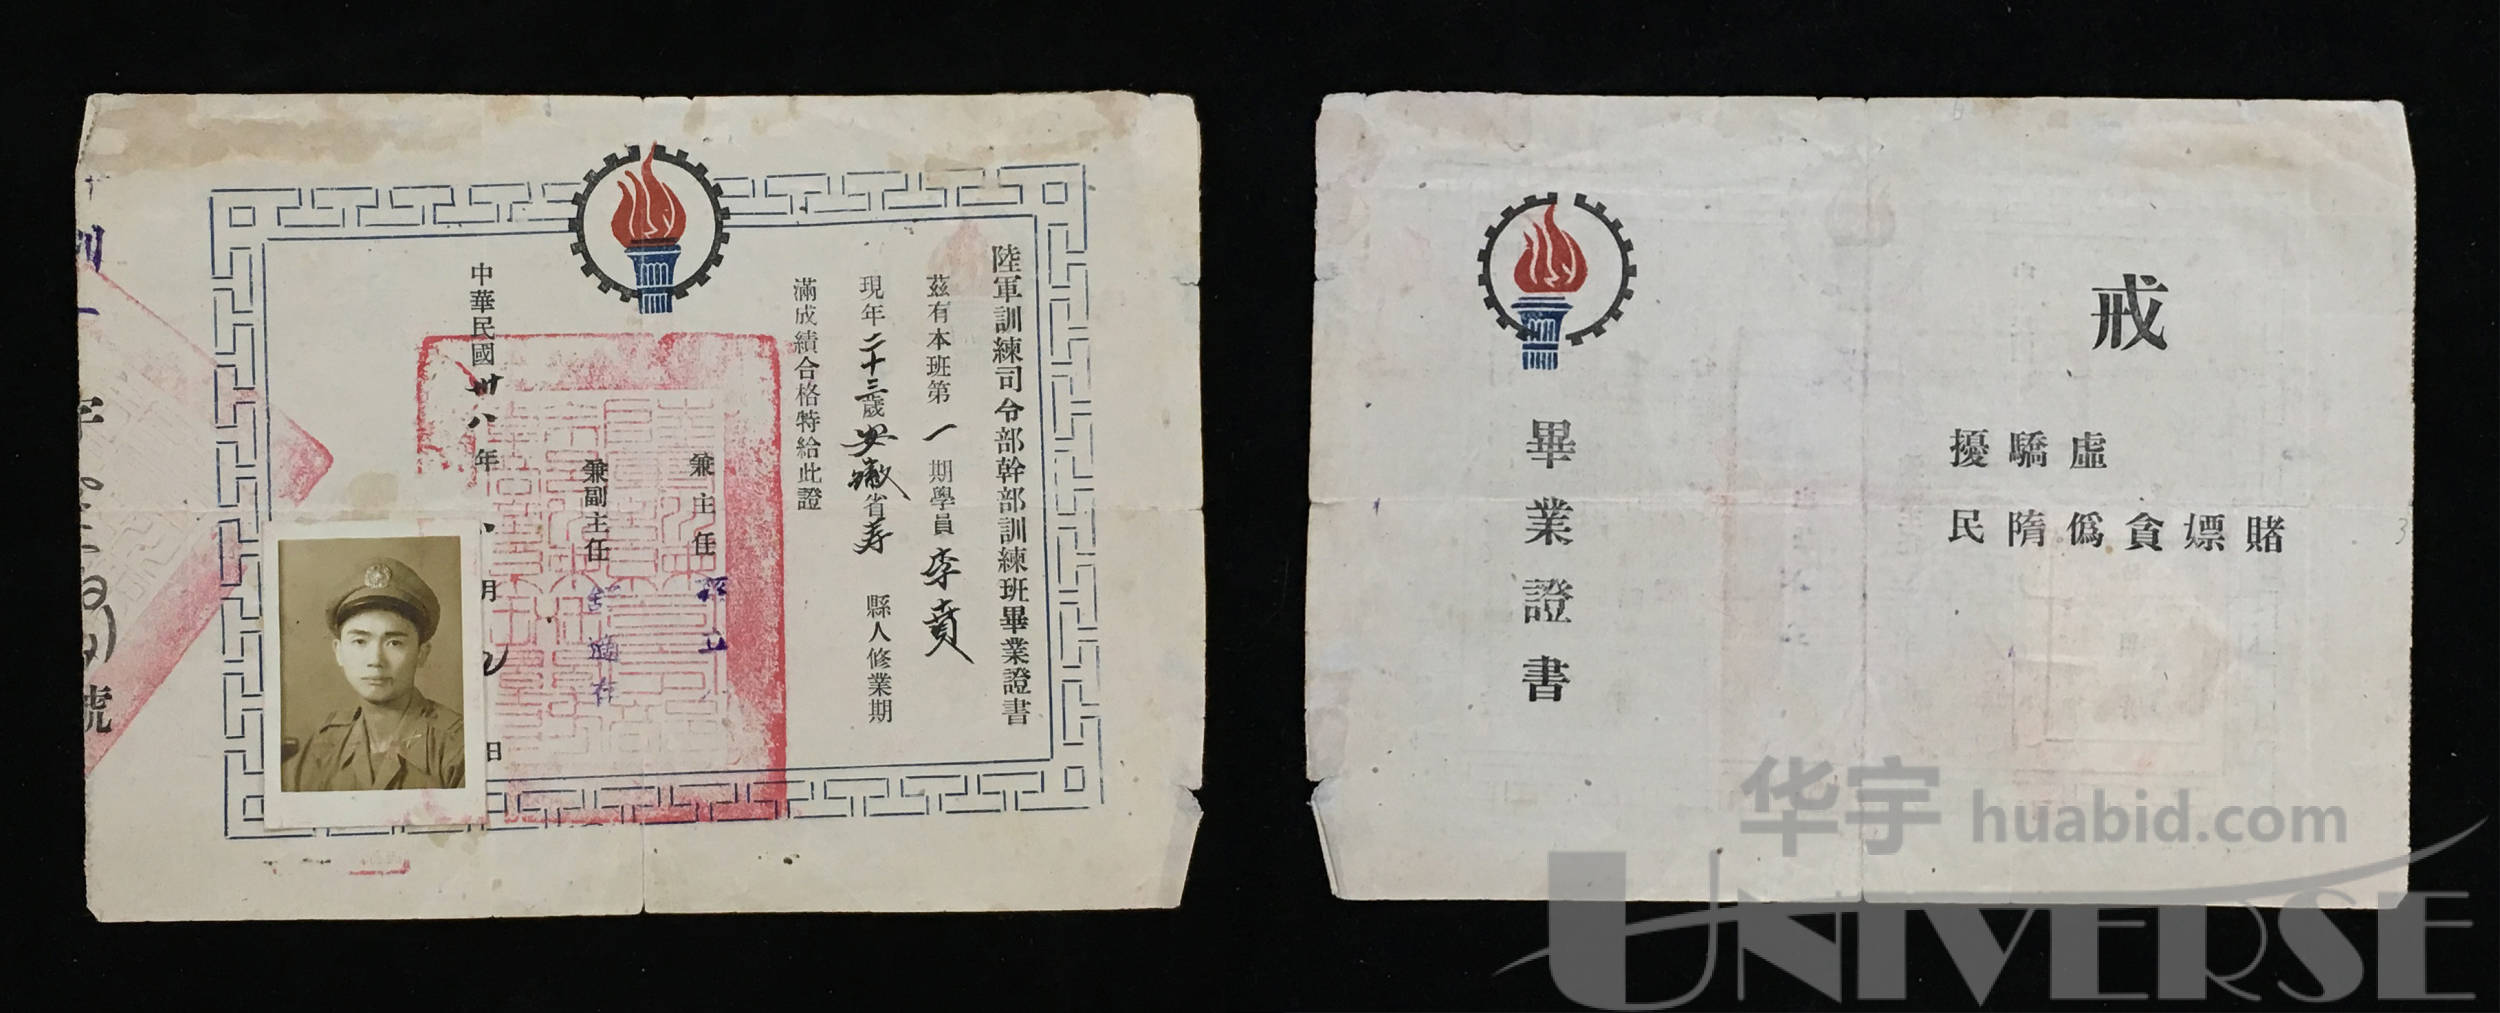 陸軍訓練司令部幹部訓練班畢業證書
茲有本班第一期學員李賁
現年二十三歲安徽省寿縣人修業期
滿成績合格特給此證
兼主任 孫立人
兼副主任
中華民國卅八年八月 日
字 號
戒
賭
嫖
貪
虛偽
驕隋
擾民
畢業證書
3
华宇 huabid.com
UNIVERSE